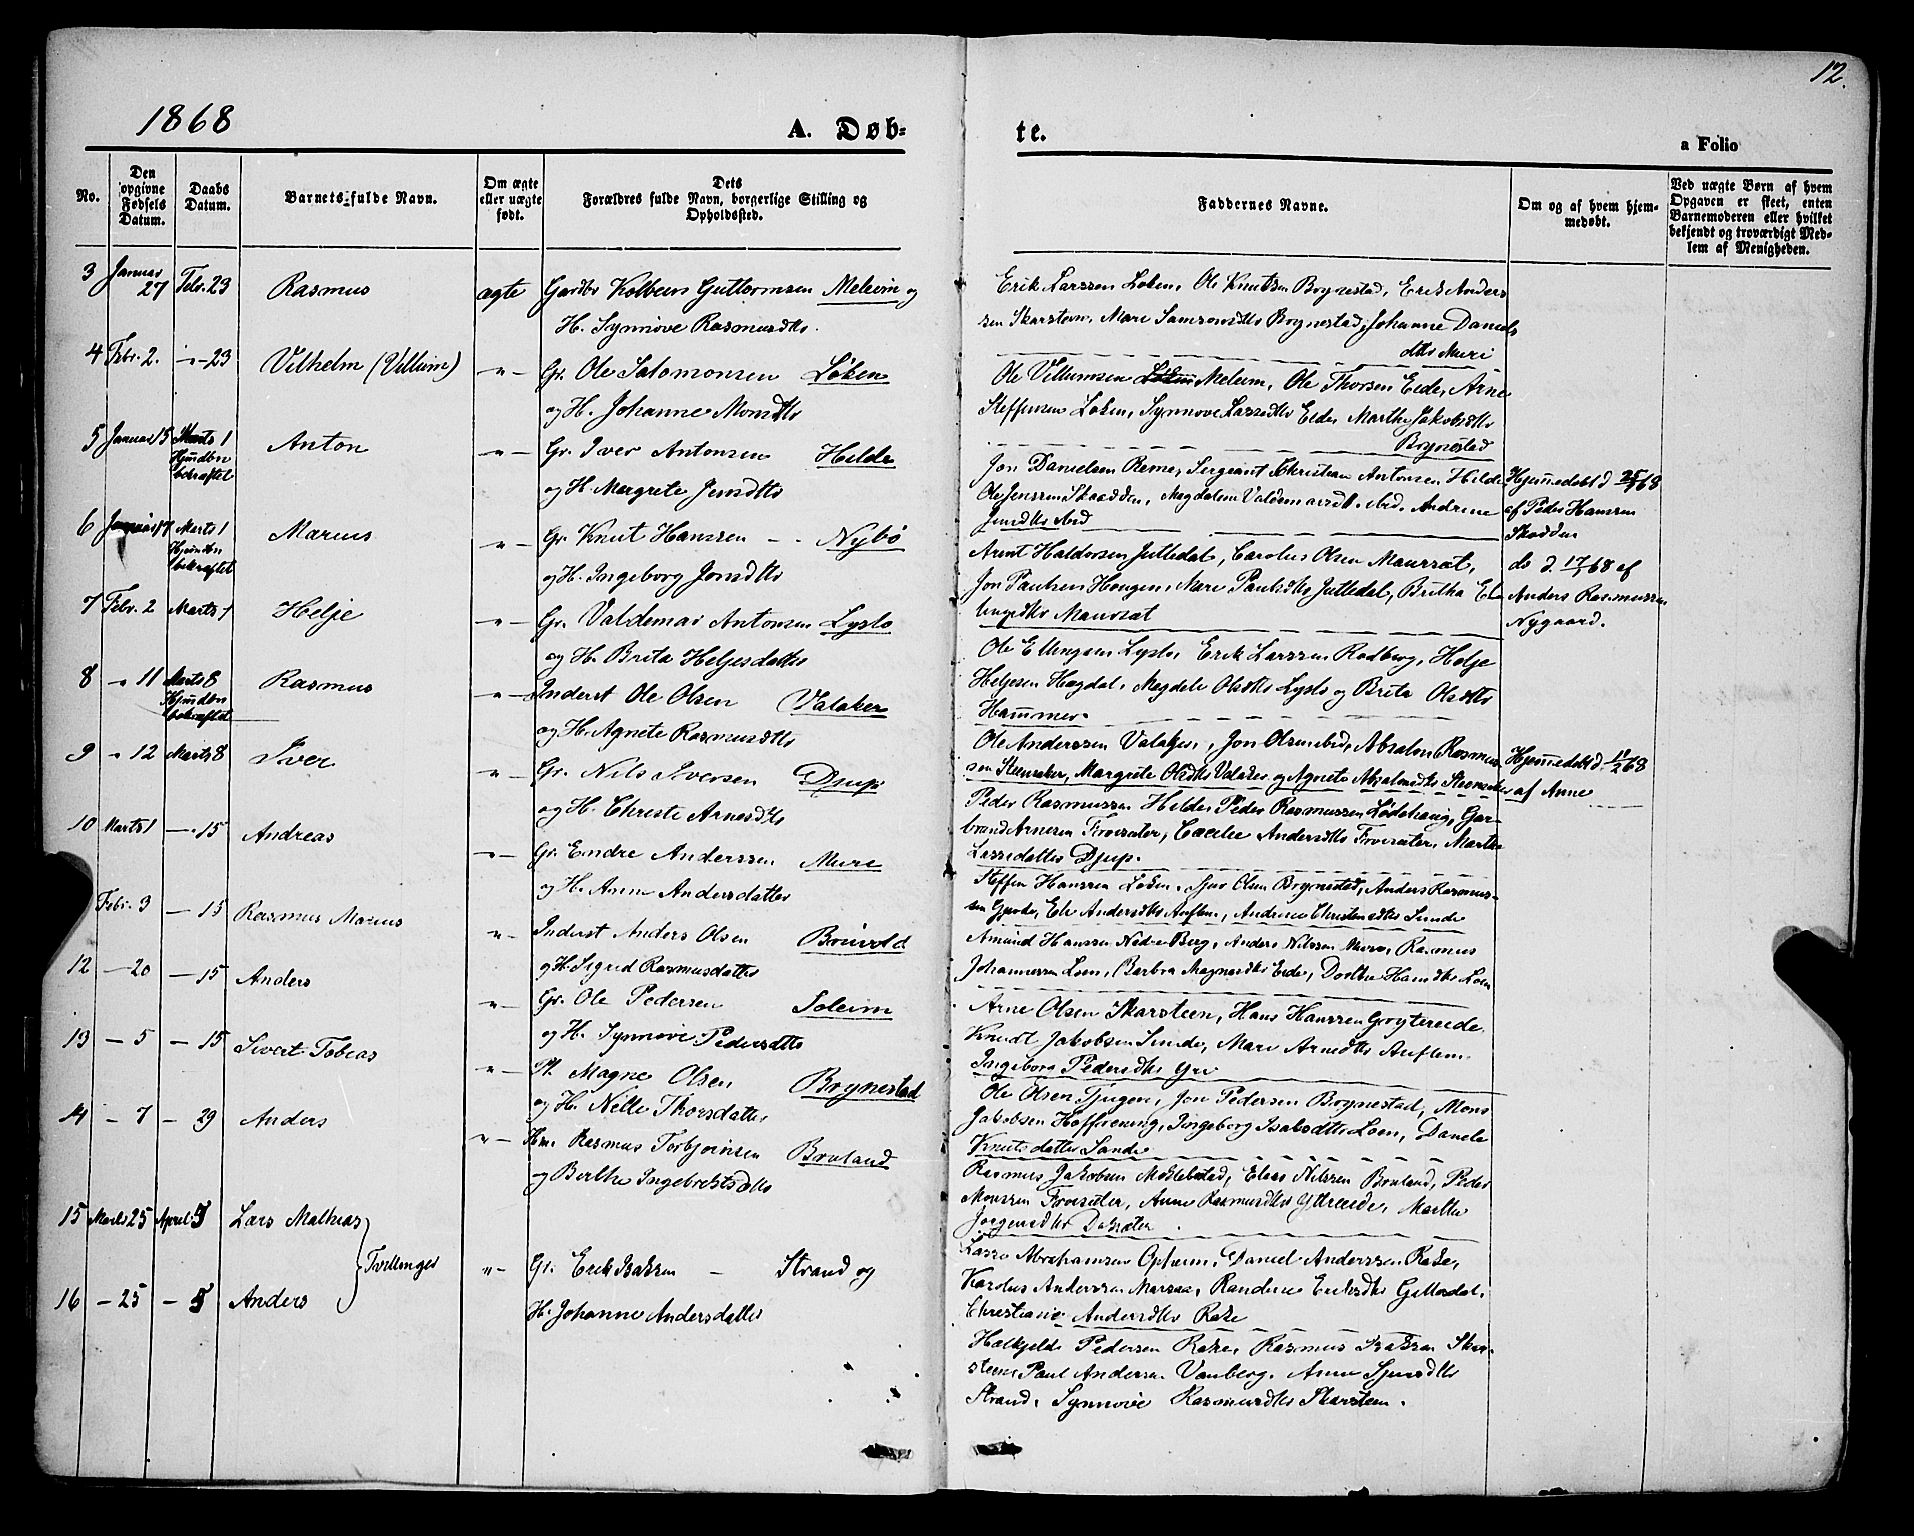 12.
1868
A. Døb-
te.
a Folio
No.
Den opgivne Fødsels Datum.
Daabs Datum.
Barnets fulde Navn.
Om ægte eller uægte født.
Dets Forældres fulde Navn, borgerlige Stilling og Opholdssted.
Faddernes Navne.
Om og af hvem hjemmedøbt.
Ved uægte Børn af hvem Opgaven er skeet, enten Barnemoderen eller hvilket bekjendt og troværdigt Medlem af Menigheden.
3 Januar 27 Febr. 23 Rasmus ægte Gardbr Kolbeen Guttormsen Meleim og
H. Synnøve Rasmusdtr.
Erik Larssen Løken, Ole Knutsen Brynestad, Erik Anders
sen Skarsteen, Mari Samsonsdtr Brynestad, Johanne Daniels
dtr Muri
4 Febr. 2. -"- 23 Vilhelm (Villum) -"- Gr. Ole Salomonsen Løken
og H. Johanne Monsdtr
Ole Villumsen Meleim, Ole Thorsen Eide, Arne
Steffensen Løken, Synnøve Lassedtr Eide, Marthe Jakobsdtr
Brynestad
5 Januar 15 Marts 1 Hjmdbn bekræftet Anton -"- Gr. Iver Antonsen Hilde
og H. Margrete Jensdtr
Jon Danielsen Reme, Sergeant Christian Antonsen Hilde
Ole Jenssen Skaadden, Magdalene Valdemarsdtr ibid. Andrine
Jensdtr ibid
Hjemmedøbt d. 25/1 68
af Peder Hanssen
Skodden
6 Januar 17 Marts 1 Hjmdbn bekræftet Marius -"- Gr. Knut Hanssen - - Nybø
og H. Ingeborg Jonsdtr
Arnt Haldorsen Juttedal, Carolus Olsen Maursat,
Jon Paulsen Hougen, Mari Paulsdtr Juttedal, Britha El
lingsdtr Maursat
do d. 17/1 68 af
Anders Rasmussen
Nygaard.
7 Febr. 2 Marts 1 Helje -"- Gr. Valdemar Antonsen Lyslo
og H. Brita Heljesdatter
Ole Ellingsen Lyslo, Erik Larssen Rødberg, Helje
Heljesen Hagdal, Magdele Olsdtr Lyslo og Brita Olsdtr
Hammer.
8 -"- 11 Marts 8 Hjmdbn bekræftet Rasmus -"- Inderst Ole Olsen Valaker
og H. Agnete Rasmusdtr
Ole Anderssen Valaker, Jon Olsen ibid, Absalon Rasmus
sen Steensaker, Margrete Olsdtr Valaker og Agnete Absalonsdtr
Hjemmedøbt d. 11/2 68
af Anne
9 -"- 12 Marts 8 Iver -"- Gr. Nils Iversen Djup
og H. Christi Arnesdtr
Peder Rasmussen Hilde, Peder Rasmussen Lødehaug, Gar-
brand Arnesen Froisæter, Cæcilie Andersdtr Froisæter, Marthe
Lassedatter Djup.
10 Marts 1 -"- 15 Andreas -"- Gr. Endre Anderssen Muri
og H. Anne Andersdatter
Steffen Hanssen Løken, Olsen Brynestad, Anders Rasmus-
sen Andersdtr Auflem, Andrine Christensdtr Sunde
Febr. 3 - 15 Rasmus Marius -"- Inderst Anders Olsen Bønvold
og H. Sigrid Rasmusdatter
Amund Hanssen Nedre Berg, Anders Nilssen Rasmus
Johannessen Loen, Barbra Magnesdtr Eide, Dorthe Hansdtr Loen
12 - 20 - 15 Anders -"- Gr. Ole Pedersen Soleim
og H. Synnøve Pedersdtr
Arne Olsen Skarsteen, Hans Hanssen Gryterede,
Knudt Jakobsen Sunde, Mari Arnedtr Auflem.
Ingeborg Pedersdtr
13 - 5 - 15 Sivert Tobias -"- Pl. Magne Olsen Brynestad
og H. Nille Thorsdatter
Ole Olsen Tjugen, Jon Pedersen Brynestad, Mons
Jakobsen Ingeborg Isaksdtr Loen, Danele
Knutsdatter Sande
14 - 7 - 29 Anders -"- Hm. Rasmus Torbjørnsen Bruland
og Berthe Ingebretsdtr
Rasmus Jakobsen Mokkelstad, Elias Nilssen Bruland, Peder
Monssen Froisæter, Anne Rasmusdtr Ytreeide, Marthe
Jørgensdtr
15 Marts 25 April 5 Lars Mathias
Tvillinger
-"- Gr. Erik Isaksen - Strand og
H. Johanne Andersdatter
Lasse Abrahamsen Opheim, Daniel Anderssen Rake,
Karolus Anderssen Randine Eriksdtr
Christiane Andersdtr Rake
16 - 25 - 5 Anders
Halkjeld Pedersen Rake, Rasmus Isaksen Skar-
steen Paul Andersen Vanberg. Anne Sjursdtr
Strand, Synnøve Rasmusdtr Skarsteen.